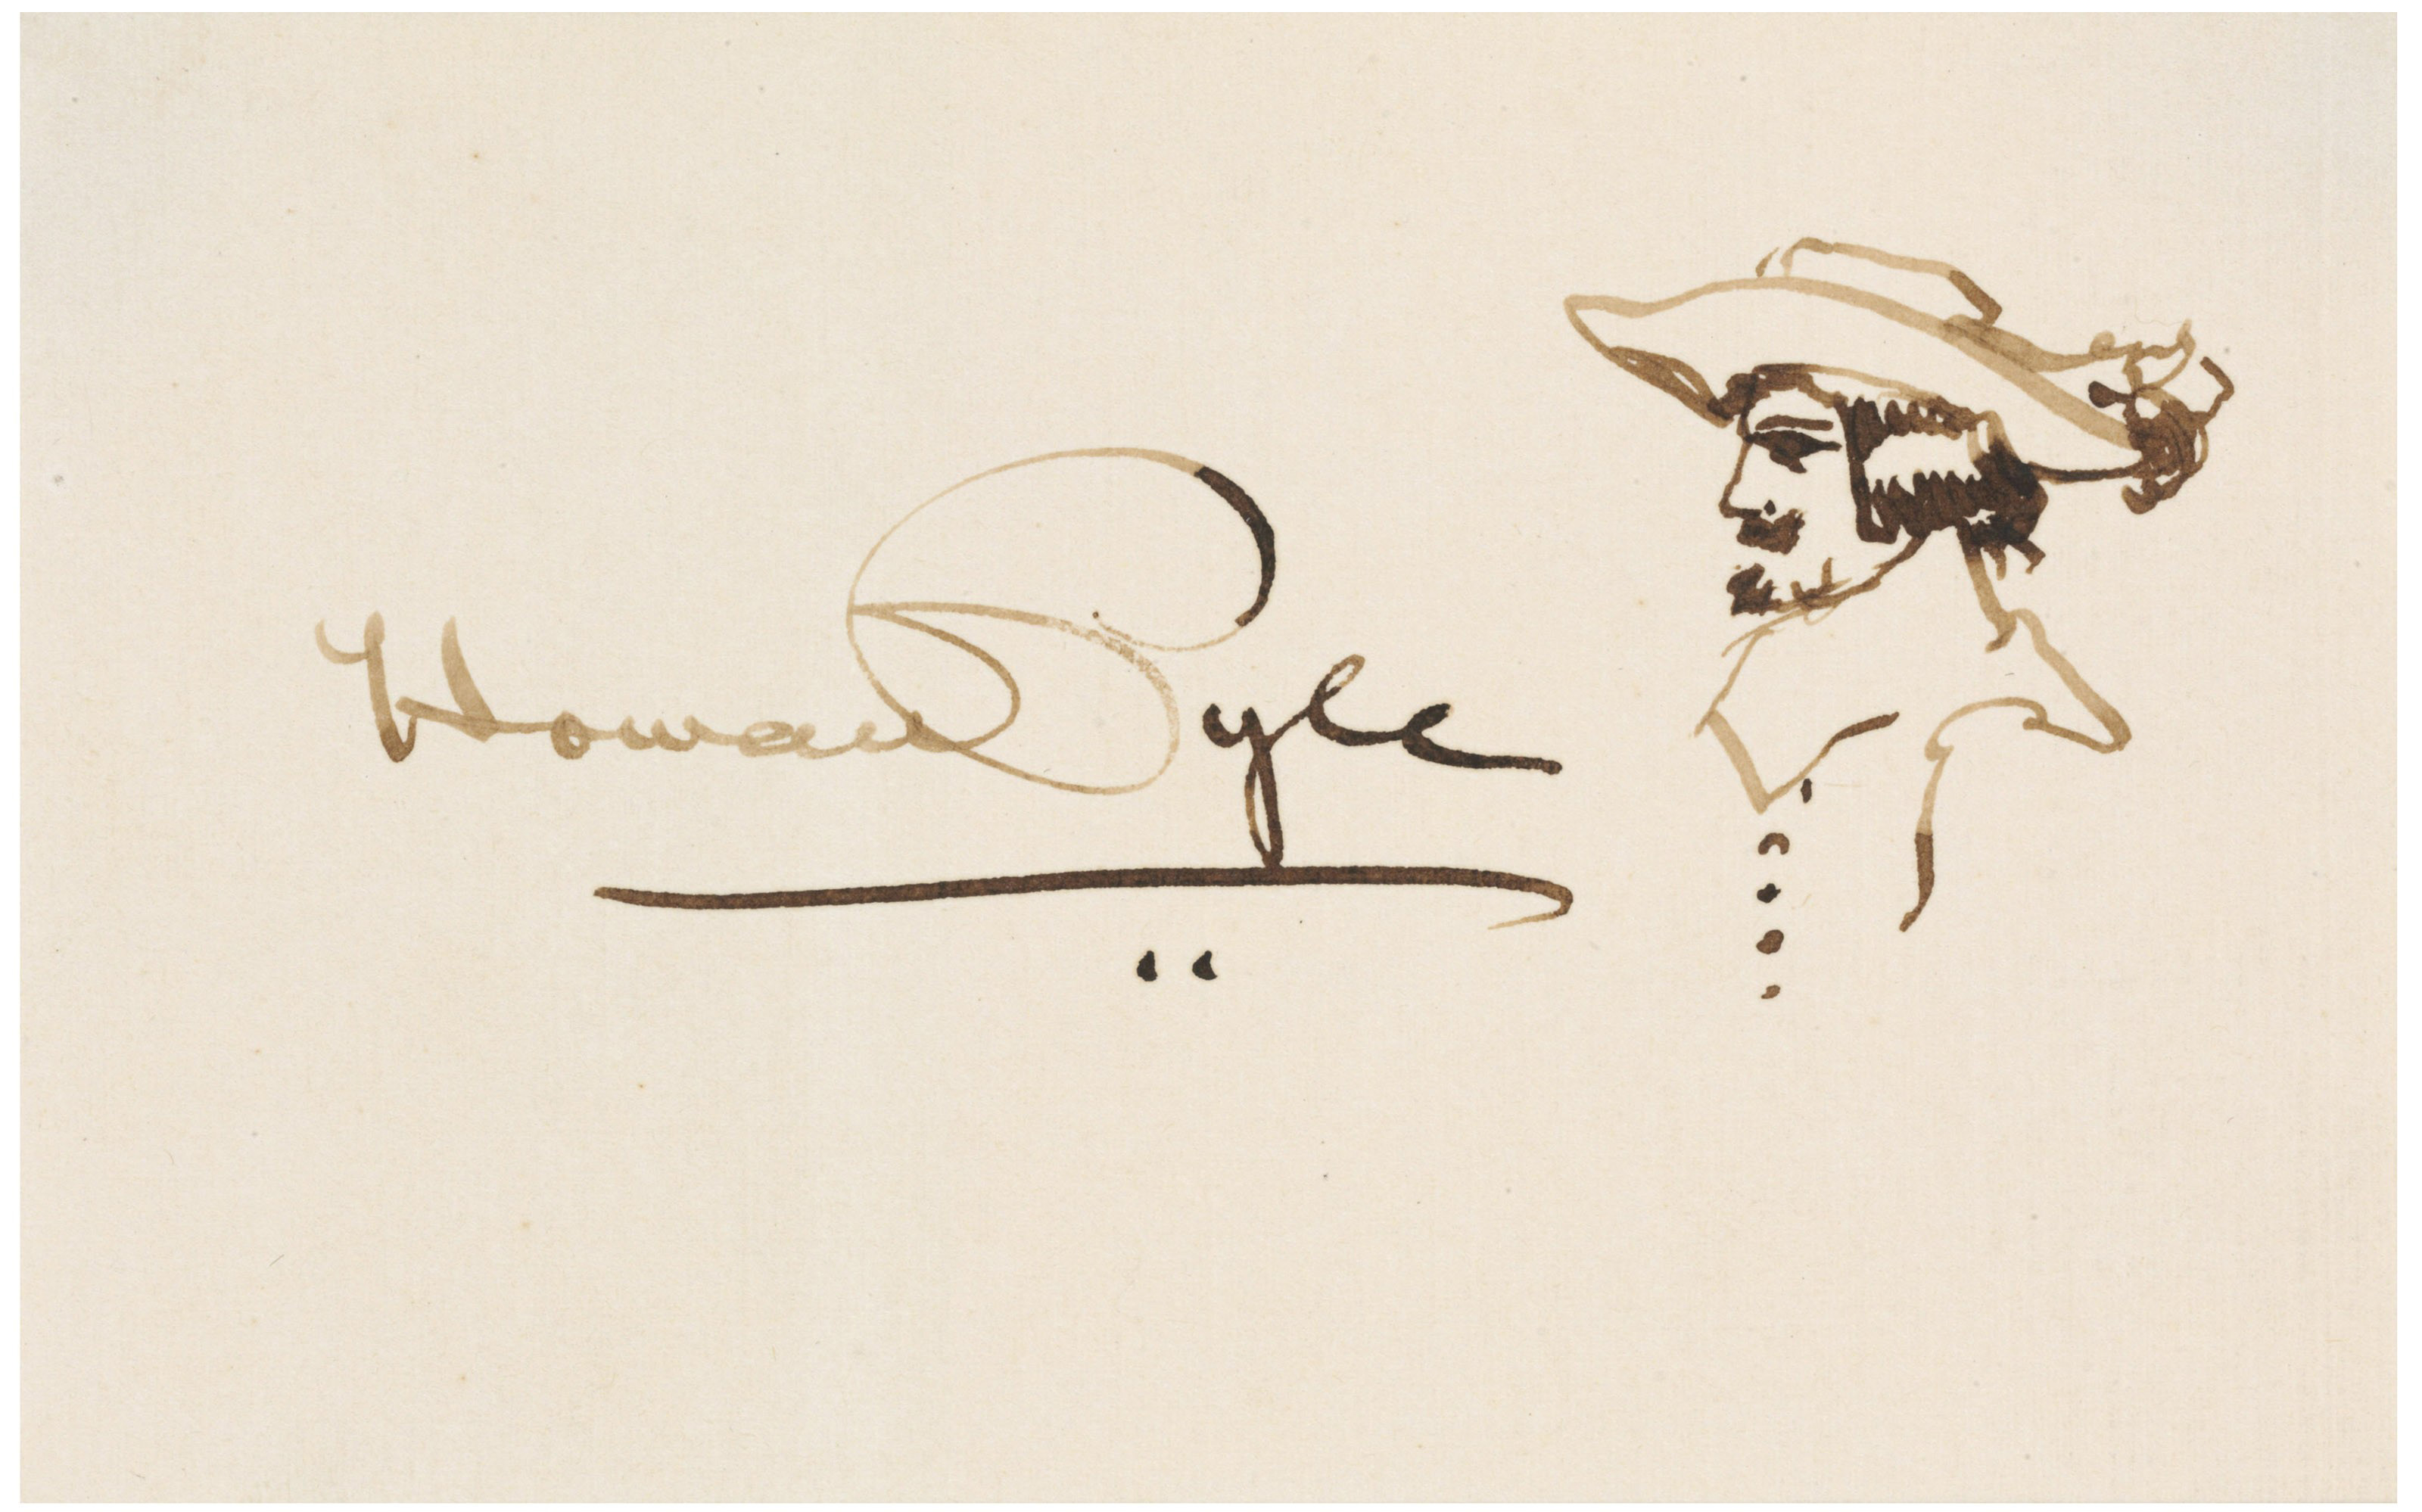 Howard Pyle